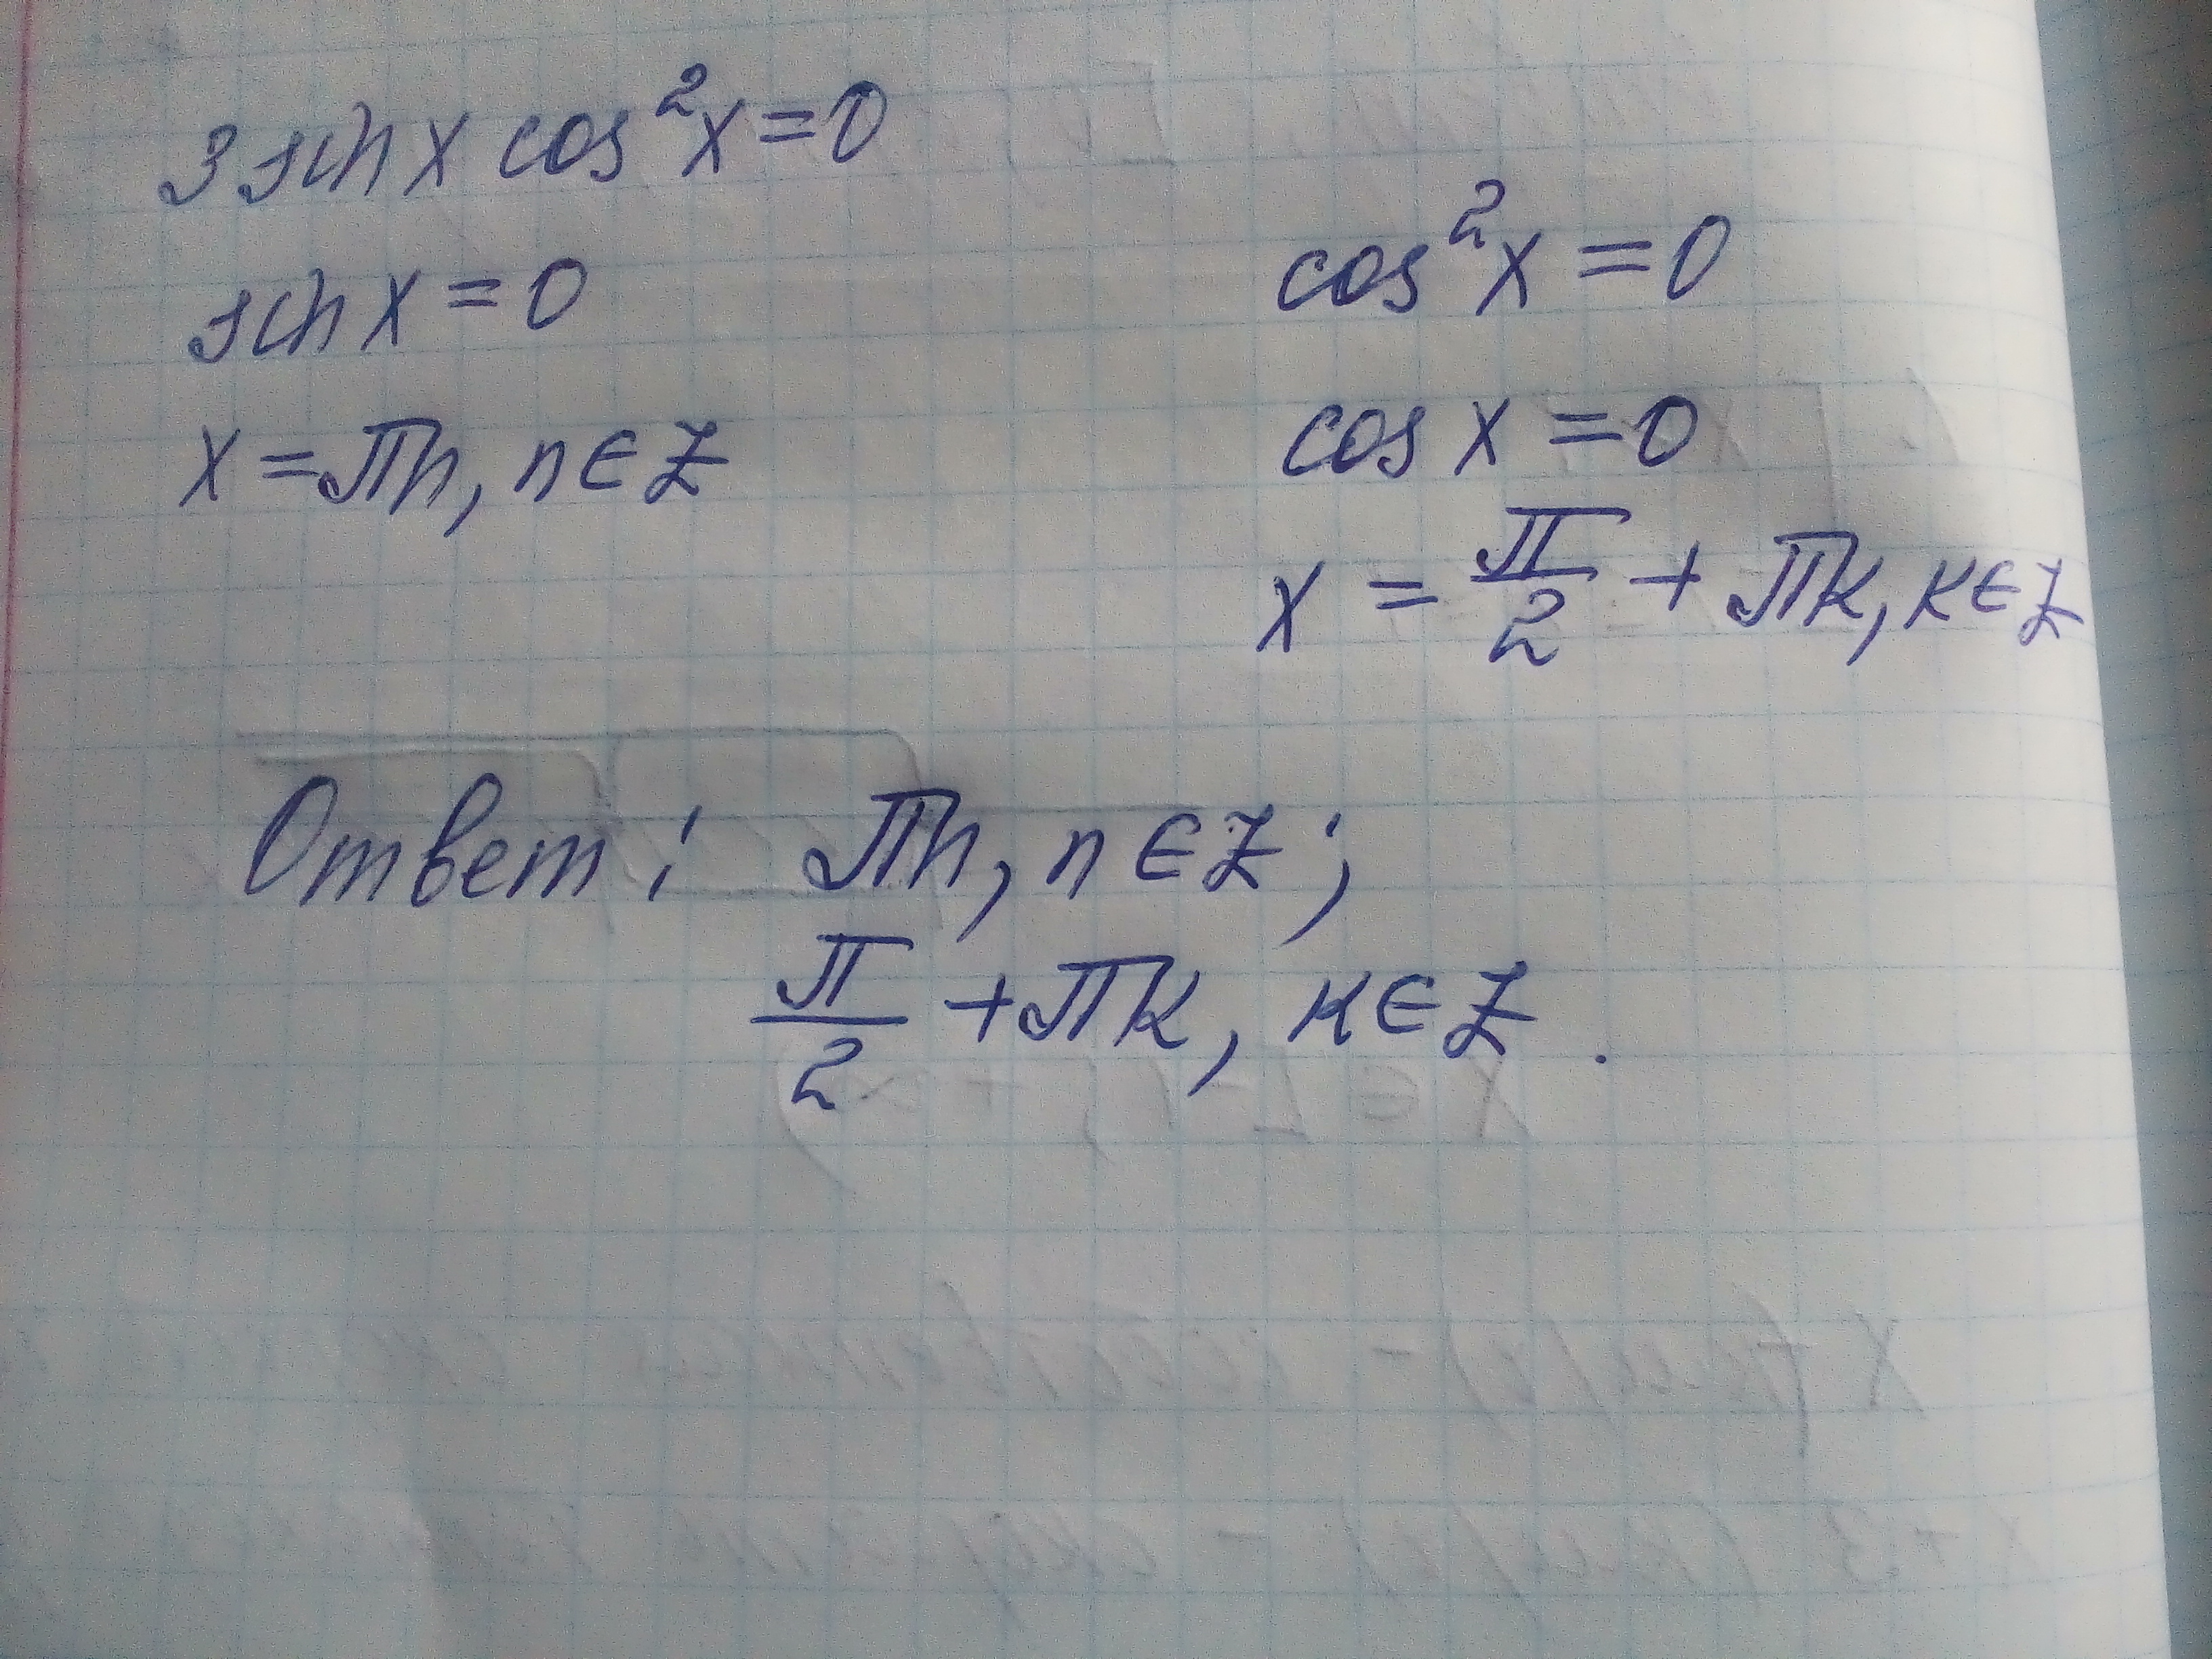 3 sin x cos²x = 0
sin x = 0
x = πn, n ∈ Z
cos²x = 0
cos x = 0
x = π/2 + πk, k ∈ Z
Ответ: πn, n ∈ Z;
π/2 + πk, k ∈ Z.